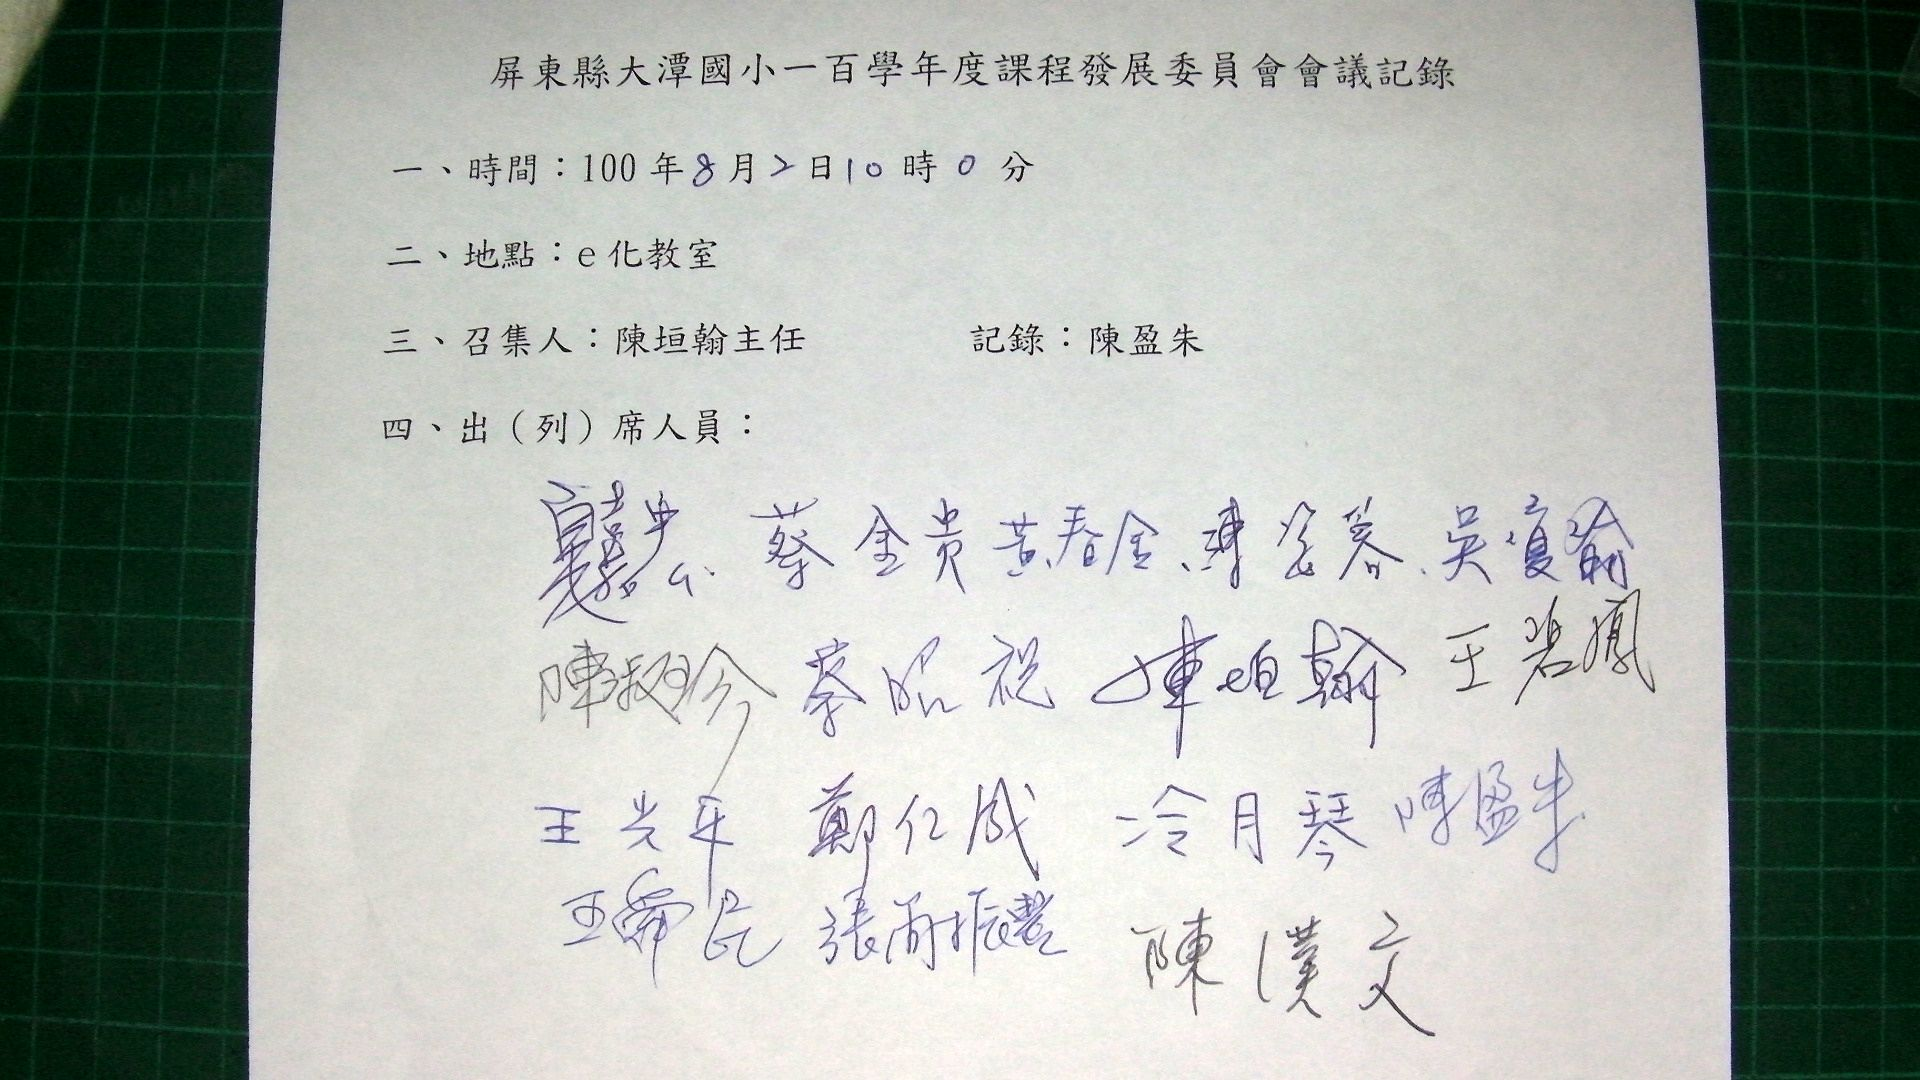 屏東縣大潭國小一百學年度課程發展委員會會議記錄
一、時間：100 年 8 月 2 日 10 時 0 分
二、地點：e 化教室
三、召集人：陳垣翰主任 記錄：陳盈朱
四、出（列）席人員：
蔡金貴 黃春金、陳 吳瓊
陳淑珍 蔡昭祝 陳垣翰 王碧鳳
王光平 鄭仁成 冷月琴 陳盈朱
王舜民 張 振豐 陳漢文